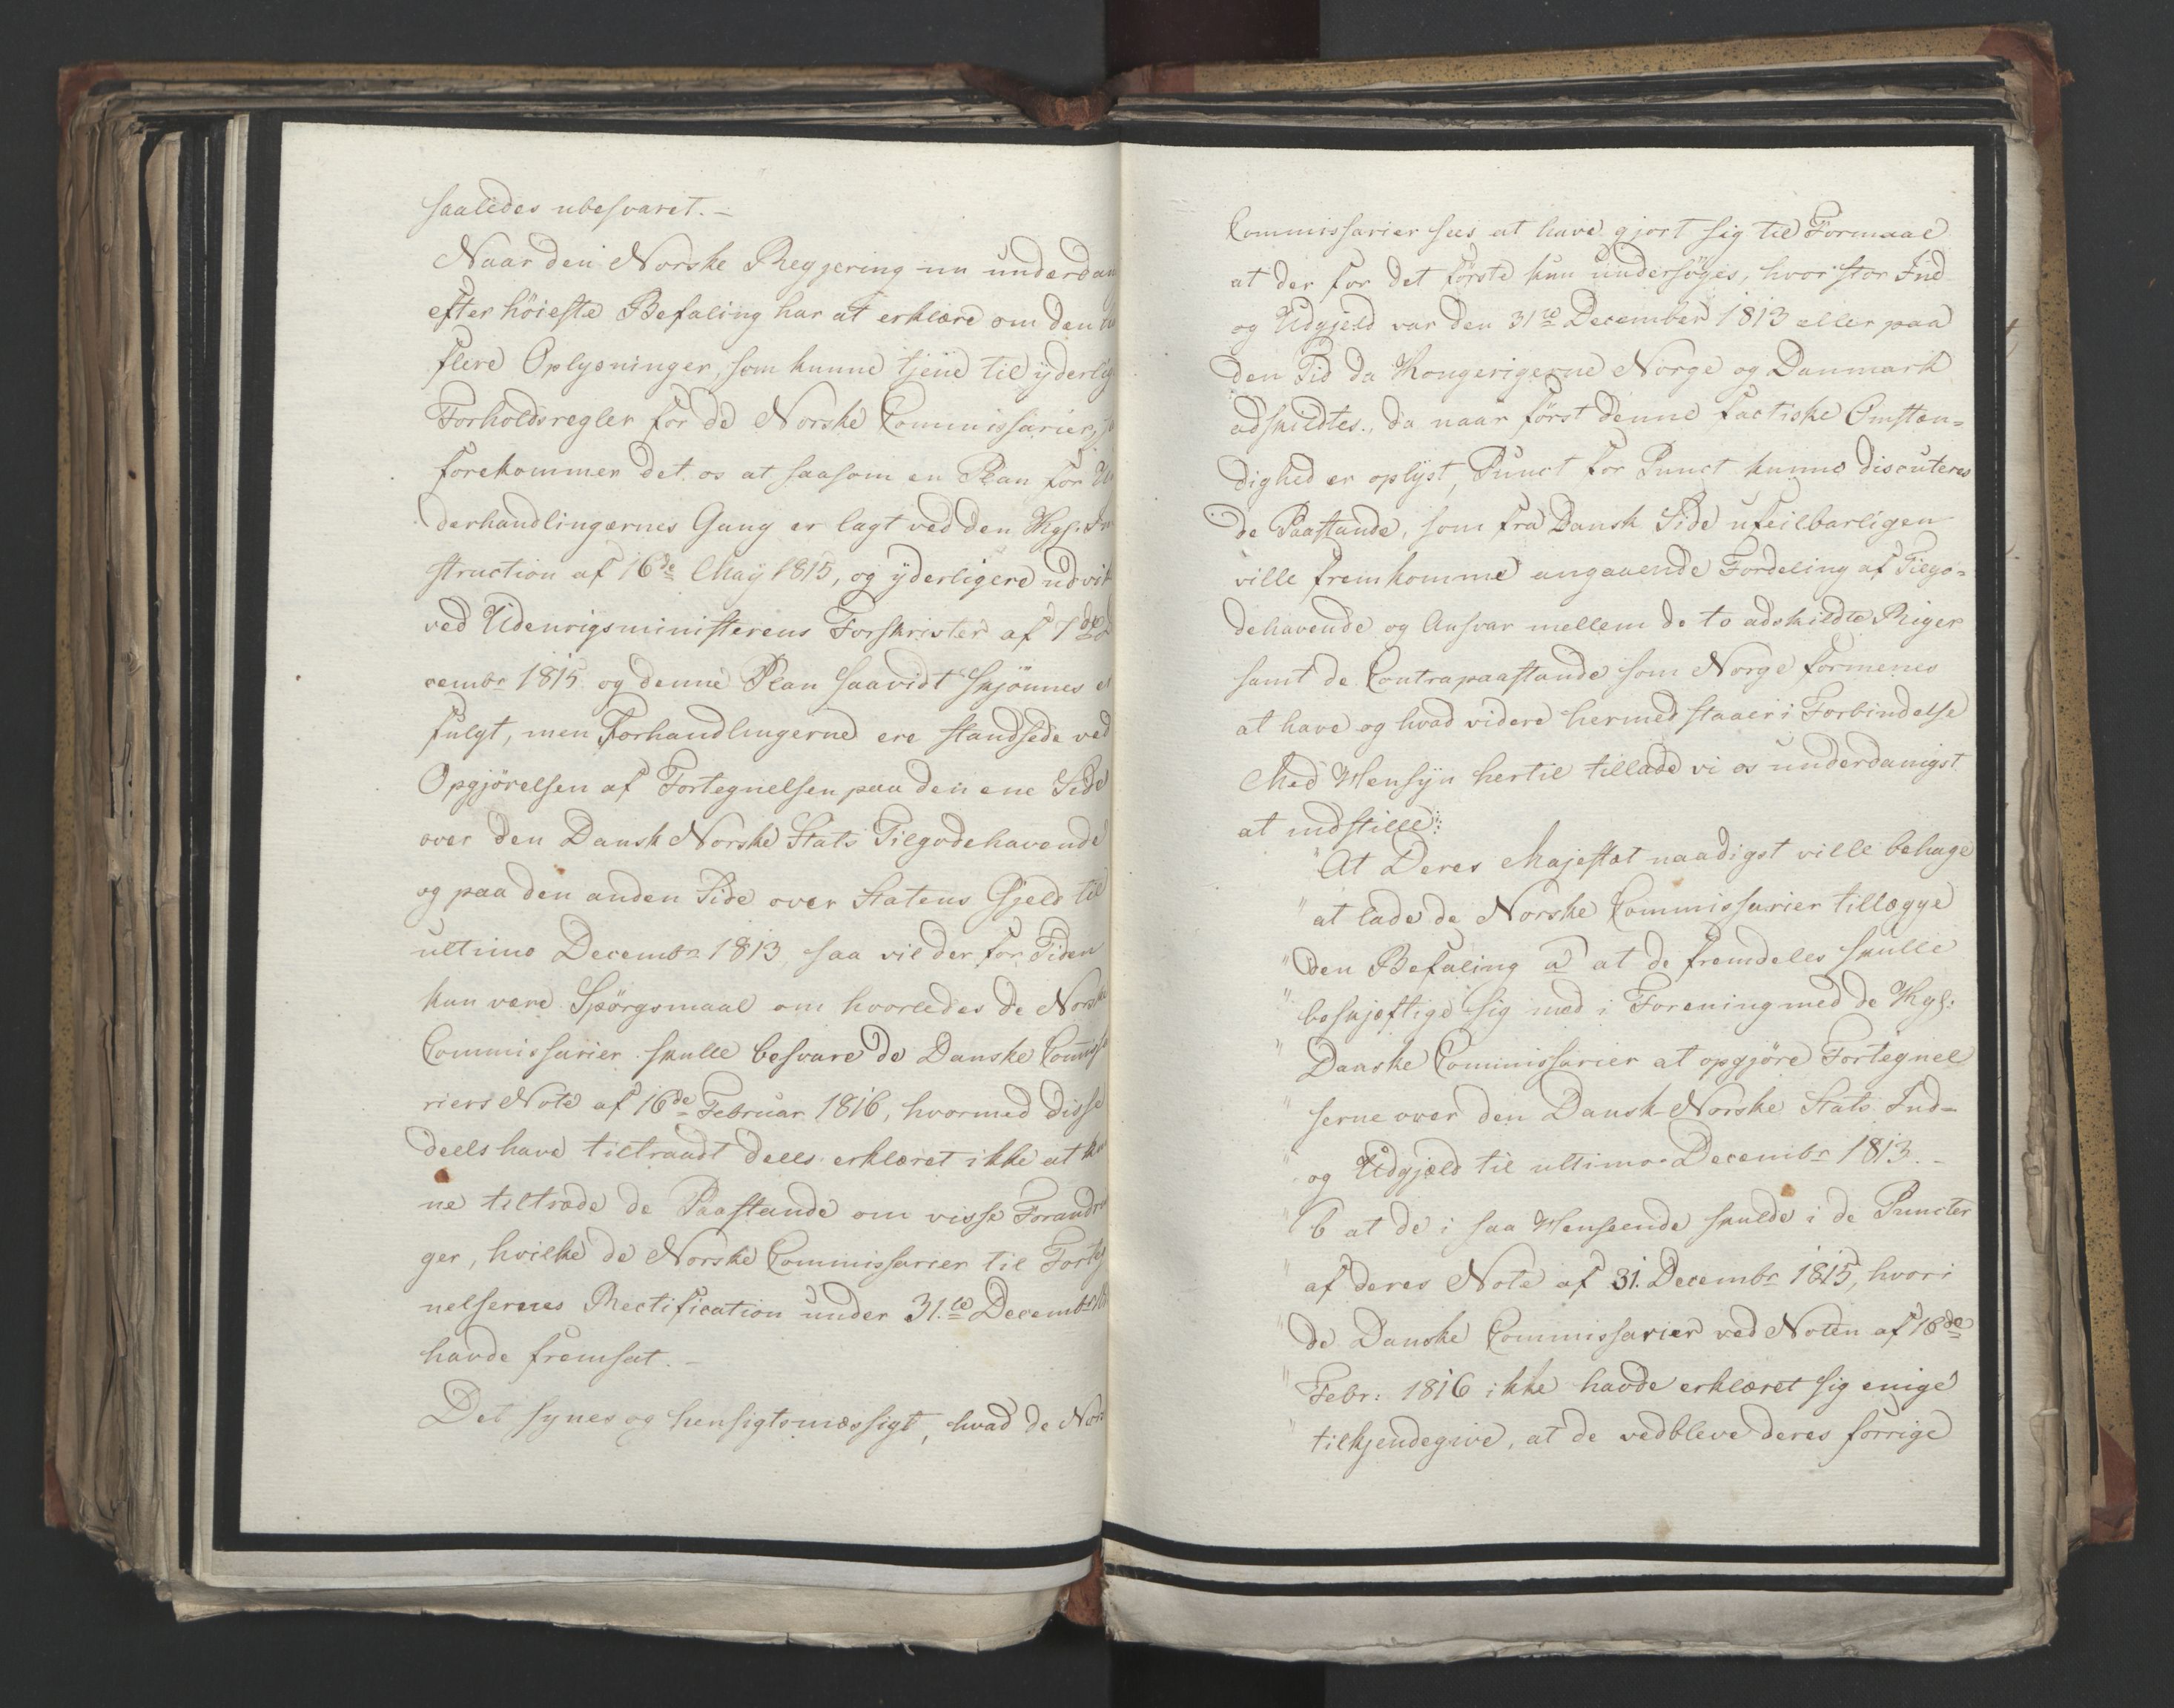 saaledes ubesvaret. –
Naar den Norske Regjering nu underdan
efter höieste Befaling har at erklære om den
flere Oplysninger, som kunne tjene til yderlig
Forholdsregler for de Norske Commissarier,
forekommer det os at saasom en Plan for U
derhandlingernes Gang er lagt ved den Kgl. In
struction af 16de May 1815, og yderligere udvik
ved Udenrigsministerens Forskrivter af 7de De
cembr 1815 og denne Plan saavidt skjönnes er
fulgt, men Forhandlingerne ere standsede ved
Opgjörelsen af Fortegnelsen paa den ene Side
over den Dansk Norske Stats Tilgodehavende
og paa den anden Side over Statens Gjeld til
ultimo Decembr 1813, saa vil der for Tiden
kun være Spörgsmaal om hvorledes de Norske
Commissarier skulle besvare de Danske Commissa
riers Note af 16de Februar 1816, hvormed disse
deels have tiltraadt deels erklæret ikke at kun
ne tiltræde de Paastande om visse Forandrin
ger, hvilke de Norske Commissarier til Forteg
nelsernes Rectification under 31.te Decembr 18
havde fremsat. –
Det synes og hensigtsmæssigt, hvad de Nor
Commissarier sees at have gjort sig til Formaal
at der for det förste kun undersöges, hvor stor Ind
og Udgjeld var den 31te December 1813 eller paa
den Tid da Kongerigerne Norge og Danmark
adskildtes, da naar först denne factiske Omstæn=
dighed er oplyst, Punct for Punct kunne discuteres
de Paastande, som fra Dansk Side ufeilbarligen
ville fremkomme angaaende Fordeling af Tilgo=
dehavende og Ansvar mellem de to adskildte Riger
samt de Contrapaastande som Norge formenes
at have og hvad videre hermed staaer i Forbindelse
Med Hensyn hertil tillade vi os underdanigst
at indstille:
"At Deres Majestæt naadigst ville behage
" at lade de Norske Commissarier tillægge
" den Befaling a at de fremdeles skulle
" beskjeftige sig med i Forening med de Kgl:
" Danske Commissarier at opgjöre Fortegnel
" serne over den Dansk-Norske Stats Ind=
" og Udgjæld til ultimo Decembr 1813. –
" b at de i saa Henseende skulde i de Puncter
" af deres Note af 31. Decembr 1815, hvori
" de Danske Commissarier ved Noten af 16de
" Febr: 1816 ikke havde erklæret sig enige
" tilkjendegive, at de vedbleve deres forrige